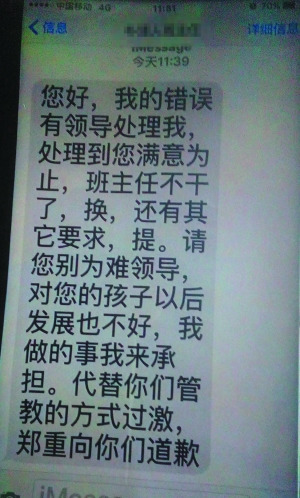 中国移动 4G 11:51 70%
信息 详细信息
iMessage
今天11:39
您好，我的错误
有领导处理我，
处理到您满意为
止，班主任不干
了，换，还有其
它要求，提。请
您别为难领导，
对您的孩子以后
发展也不好，我
做的事我来承
担。代替你们管
教的方式过激，
郑重向你们道歉
iMessage